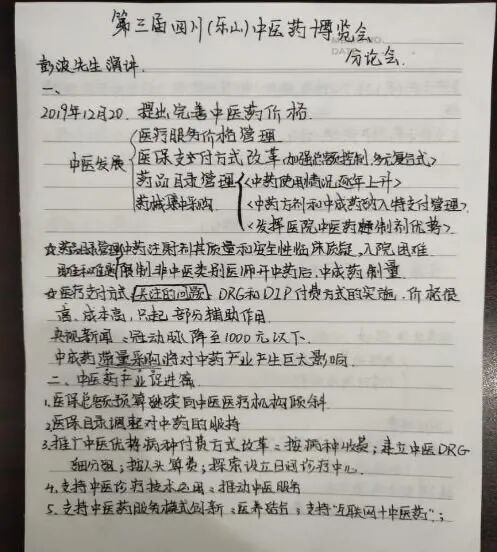 第三届四川(乐山)中医药博览会
分论会.
彭波先生演讲.
一、
2019年12月20. 提出完善中医药价格.
医疗服务价格管理
中医发展 医保支付方式改革(加强总额控制,多元复合式>
药品目录管理 <中药使用情况逐年上升>
药械集中采购 <中药方剂和中成药纳入特支付管理>
<发挥医院中医药制剂优势>
☆药品目录管理中药注射剂其质量和安全性临床质疑,入院困难
限制非中医类别医师开中药后,中成药制量
☆医疗支付方式 关注的问题 DRG和DIP付费方式的实施,价格很
高、成本高,只起部分辅助作用.
央视新闻:冠动脉降至1000元以下.
中成药带量采购将对中药产业产生巨大影响.
二、中医药产业促进篇
1.医保总额预算继续向中医医疗机构倾斜
2.医保目录调整对中药的收持
3.推广中医优势病种付费方式改革:按病种收费;建立中医DRG
细分组;按人头算费;探索设立日间诊疗中心.
4.支持中医诊疗技术应用:推动中医服务
5.支持中医药服务模式创新:医养结合;支持"互联网+中医药";